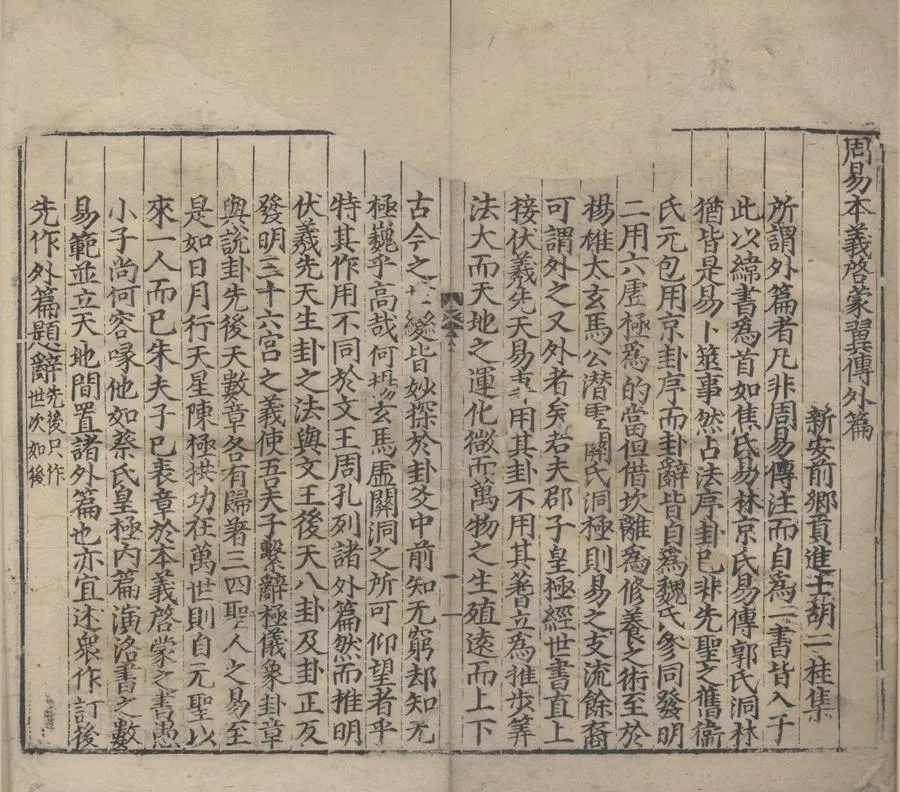 周易本義啓蒙翼傳外篇
新安前鄉貢進士胡一桂集
所謂外篇者凡非周易傳注而自為一書皆入于
此以緯書為首如焦氏易林京氏易傳郭氏洞林
猶皆是易卜筮事然占法序卦已非先聖之舊衛
氏元包用京卦序而卦辭皆自為魏氏參同發明
二用六虛極為的當但借坎離為修養之術至於
楊雄太玄馬公潜虛關氏洞極則易之支流餘裔
可謂外之又外者矣若夫邵子皇極經世書直上
接伏羲先天易専用其卦不用其蓍立為推步筭
法大而天地之運化微而萬物之生殖遠而上下
古今之 變皆妙探於卦爻中前知无窮却知无
極巍乎高哉何 玄馬虛關洞之所可仰望者乎
特其作用不同於文王周孔列諸外篇然而推明
伏羲先天生卦之法與文王後天八卦及卦正反
發明三十六宮之義使吾夫子繫辭極儀象卦章
與說卦先後天數章各有歸著三四聖人之易至
是如日月行天星陳極拱功在萬世則自元聖以
來一人而已朱夫子已表章於本義啓蒙之書愚
小子尚何容喙他如蔡氏皇極內篇演洛書之數
易範並立天地間置諸外篇也亦宜述衆作訂後
先作外篇題辭 先後只作世次如後